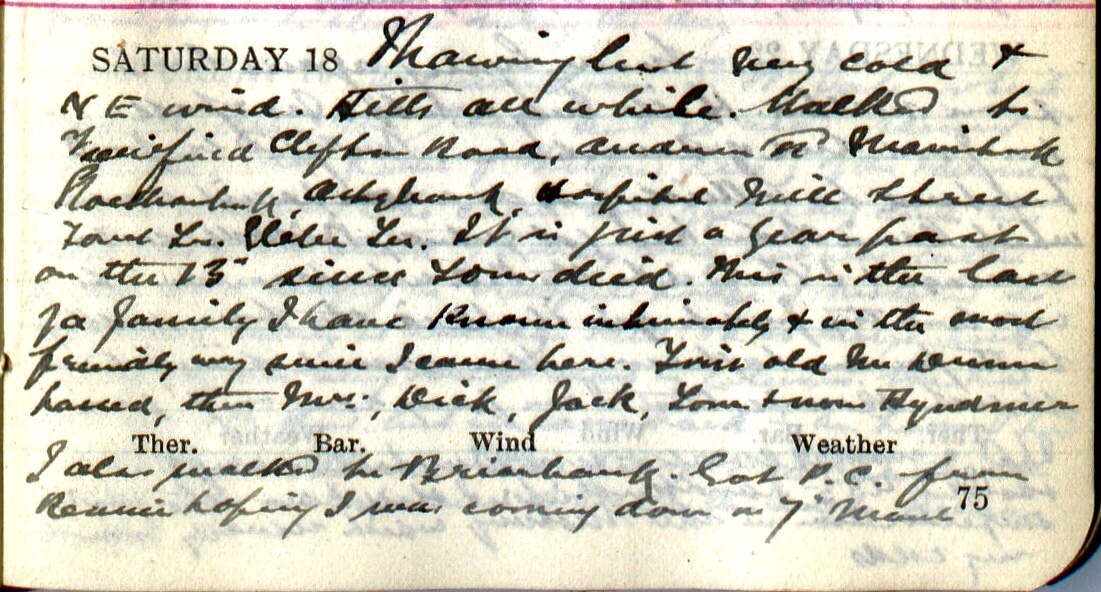 SATURDAY 18 Thawing but very cold &
N E wind. Hills all white. Walked to
Clifton Road,
Ashybank, Hospital Mill Street
It is just a year past
on the 13th since Tom died. This is the last
of a family I have known intimately & in the most
friendly way since I came here. First old Mr
passed, then Mrs:, Dick, Jack, Tom & now Hyndmer
Ther. Bar. Wind Weather
I also walked to Briarbank. Got P.C. from
hoping I was coming down on 7th March
75